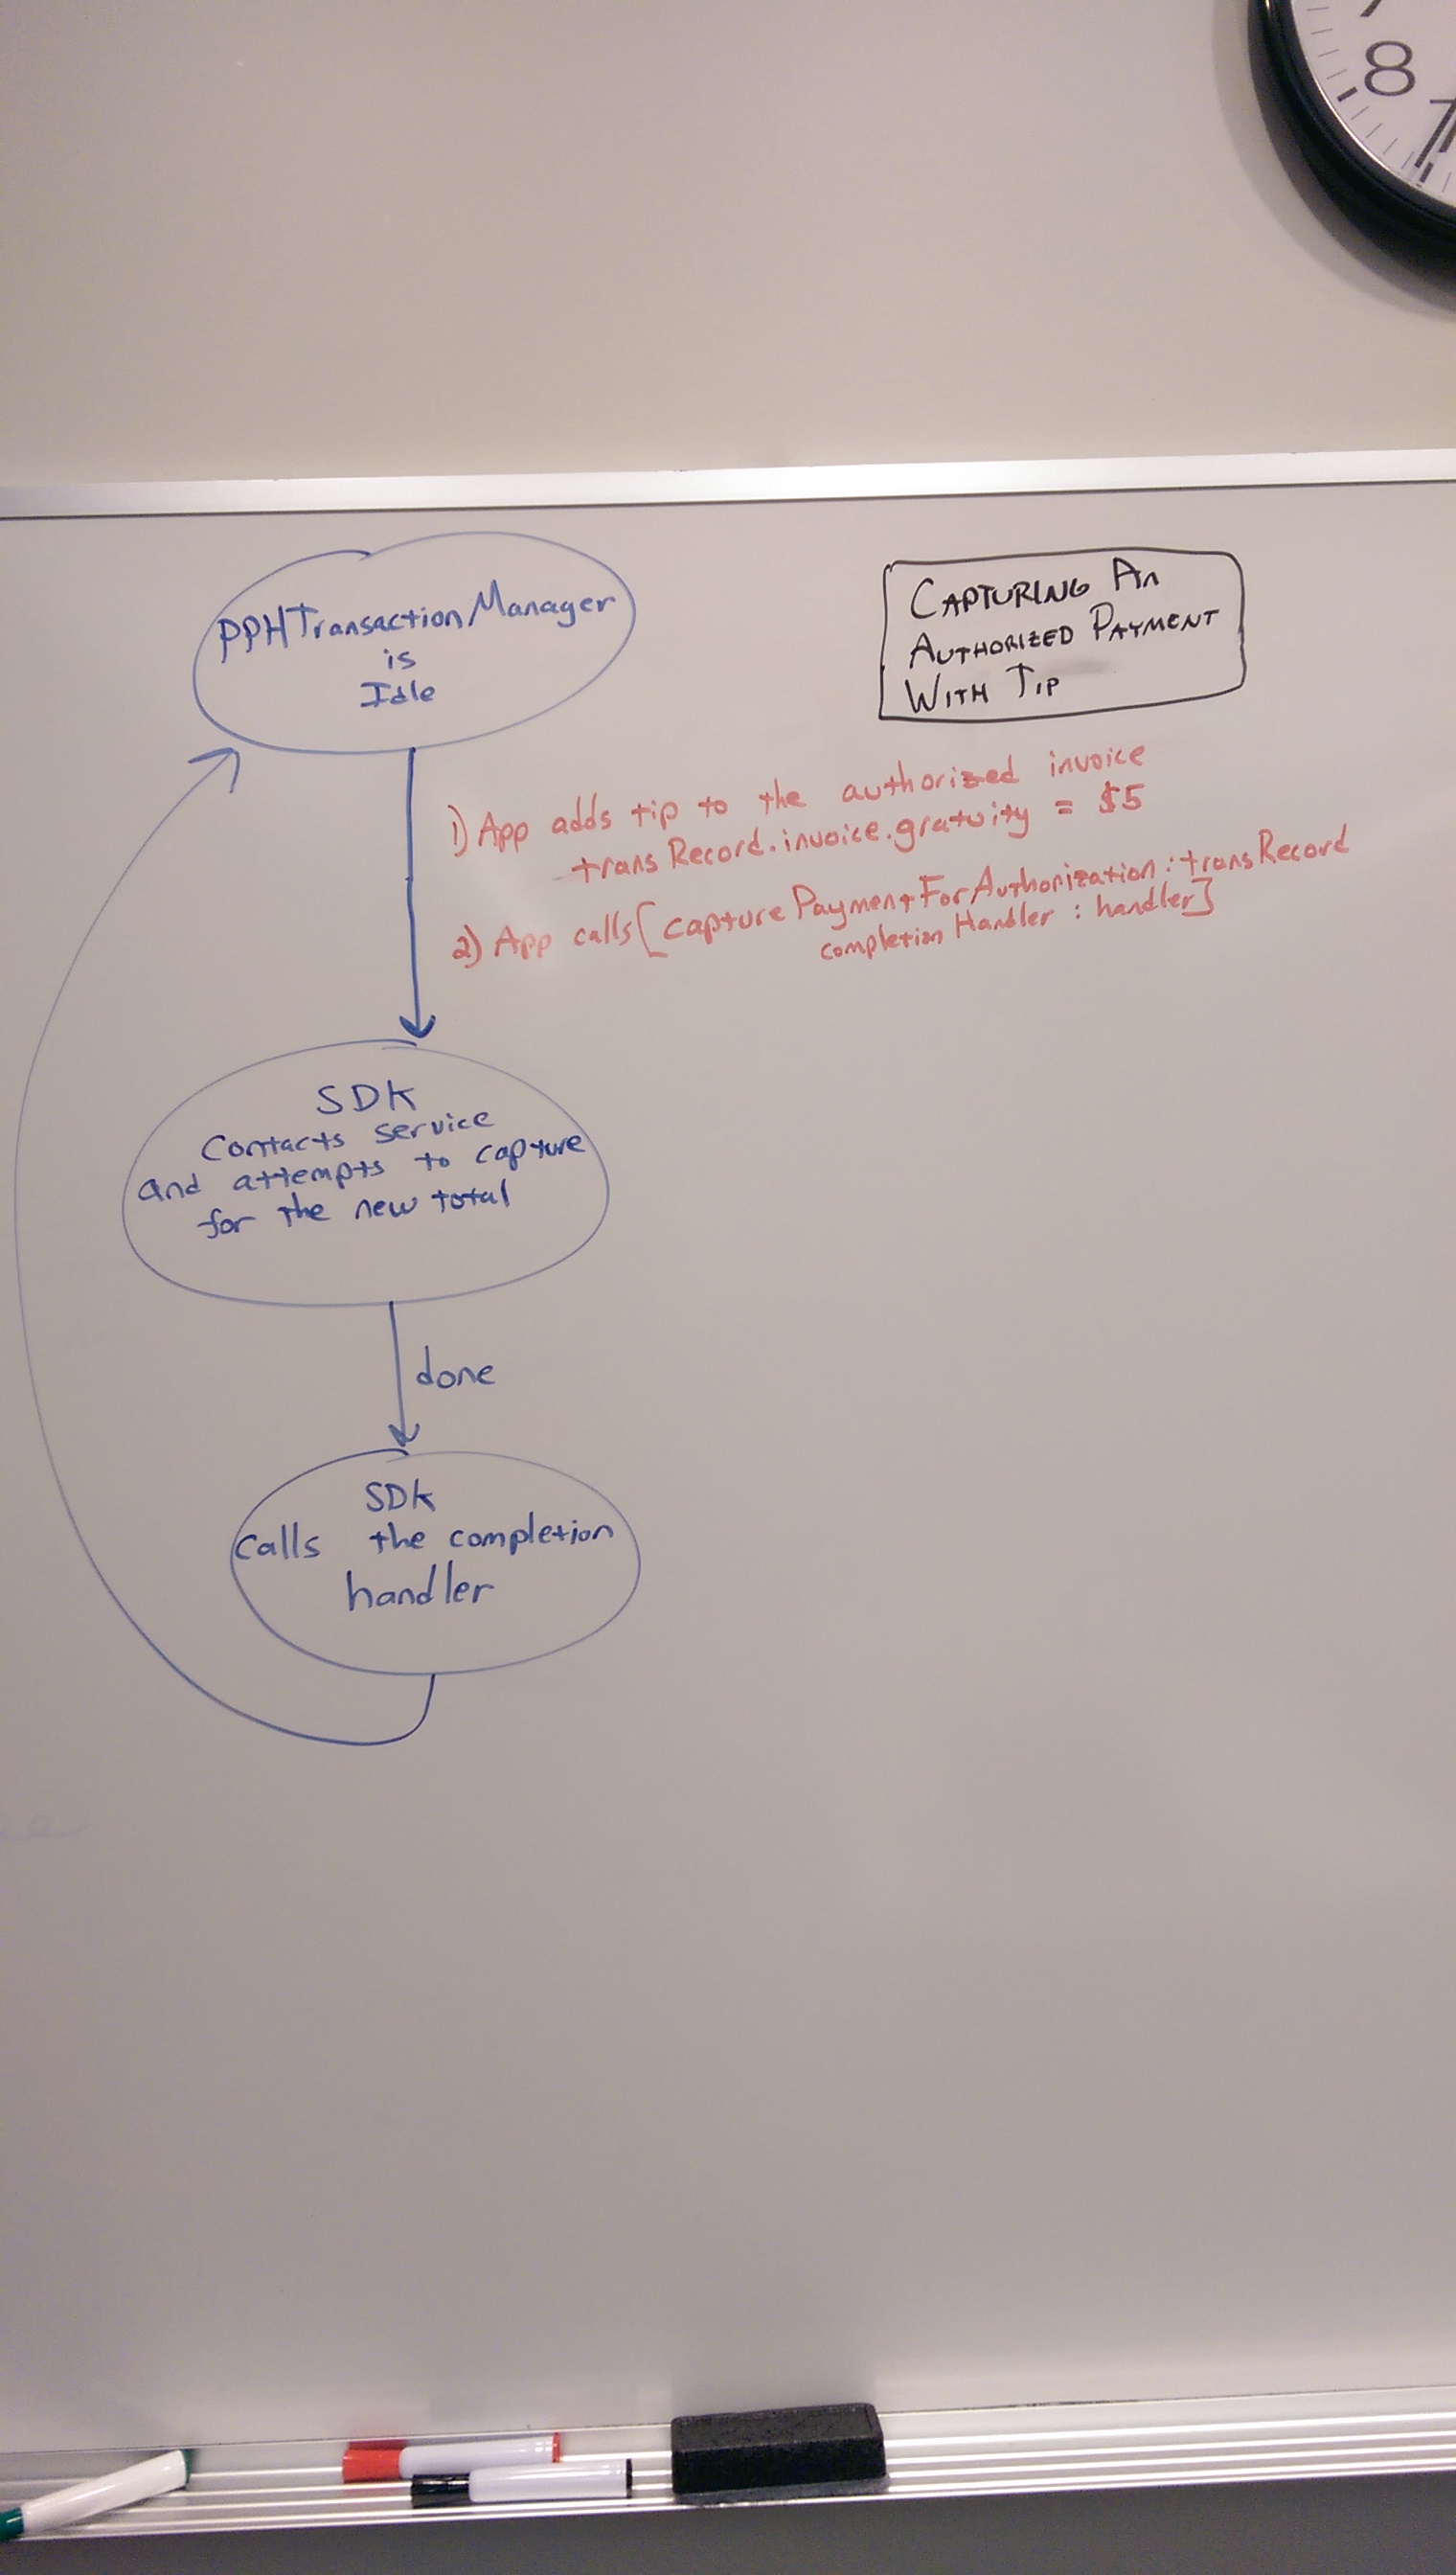 8
PPHTransactionManager
is
Idle
CAPTURING An
AUTHORIZED PAYMENT
WITH TIP
1) App adds tip to the authorized invoice
transRecord.invoice.gratuity = $5
2) App calls [capturePaymentForAuthorization:transRecord
completionHandler: handler]
SDK
Contacts service
and attempts to capture
for the new total
done
SDK
calls the completion
handler